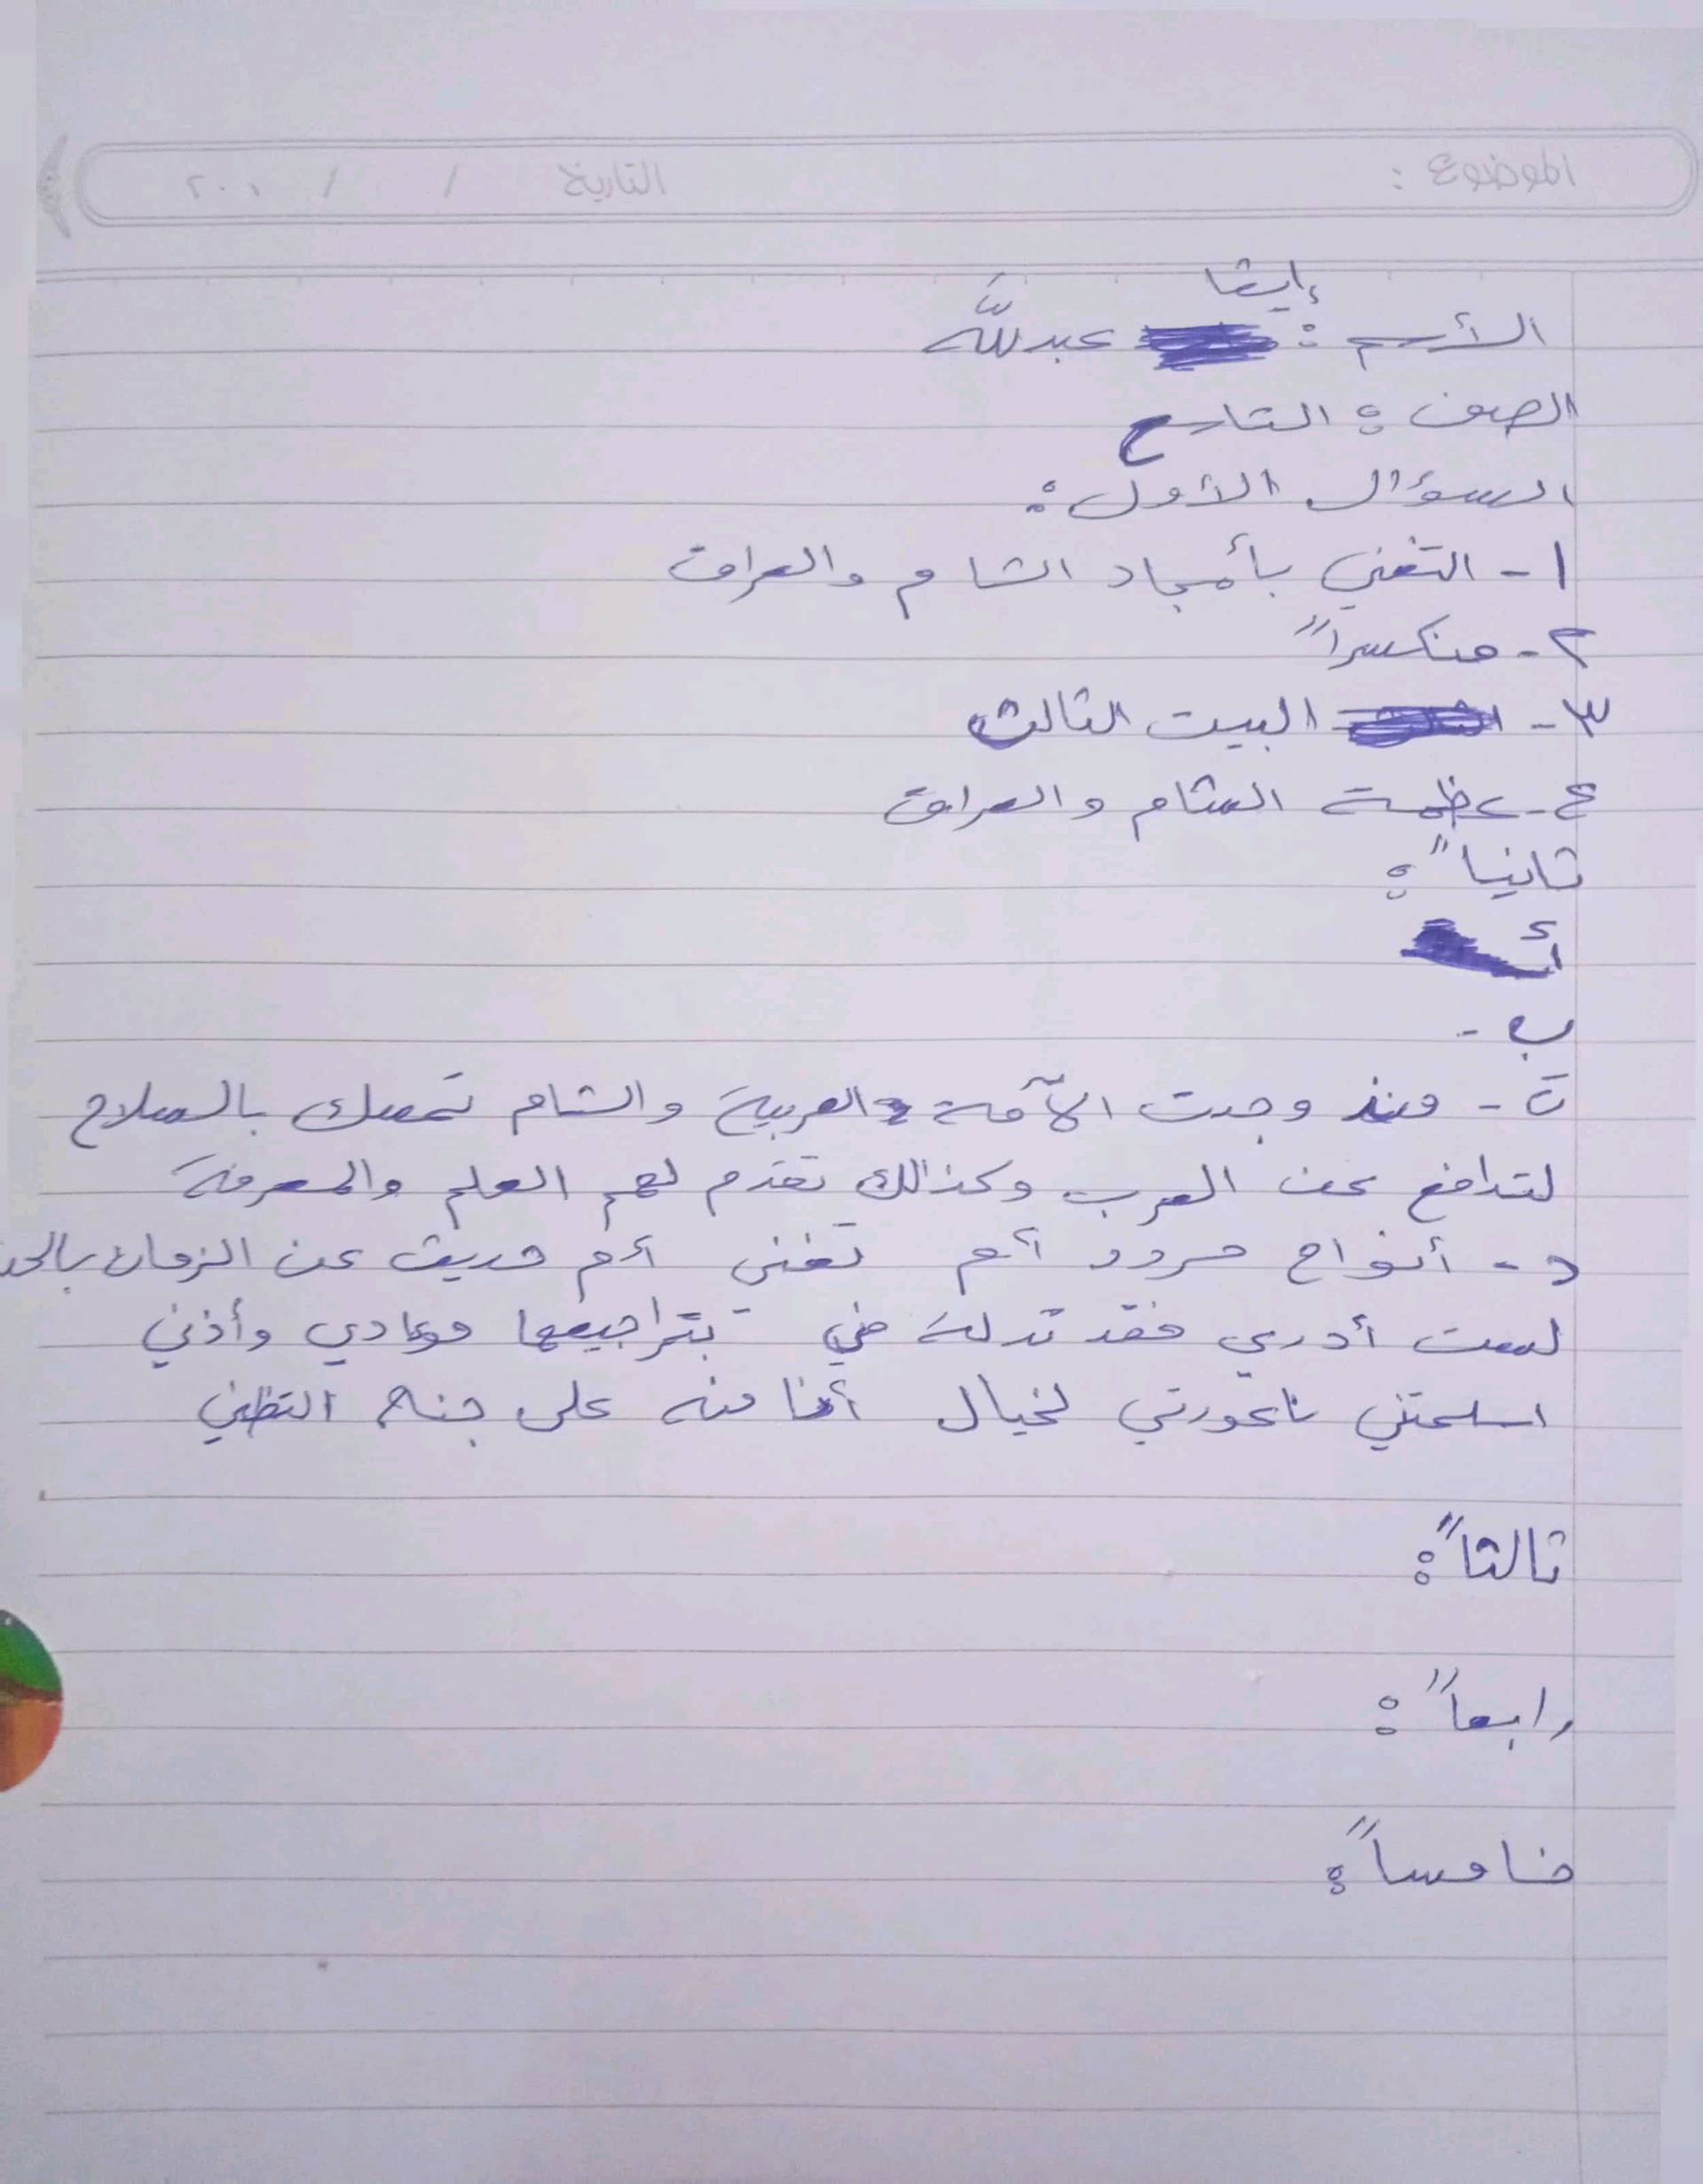 الموضوع : التارية / / ٢٠٠١
إيقا
الأسم : عبدلله
الصف : التاسع
السؤال الأول :
١- التغني بأمجاد الشام والعراق
٢- منكسراً
٣- البيت الثالث
٤- عظمة الشام والعراق
ثانياً :
أ-
ب -
ت - منذ وجدت الأمة العربية والشام تمسك بالسلاح
لتدافع عن العرب وكذالك تقدم لهم العلم والمعرفة
د - أنواح مردد أم تغني أم حديث عن الزمان بالحد
لست أدري فقد تدله في بتراجيعها فوعادي وأذني
اسلمتني ناعورتي لخيال أنا منه على جنح التظني
ثالثاً :
رابعاً :
خامساً :